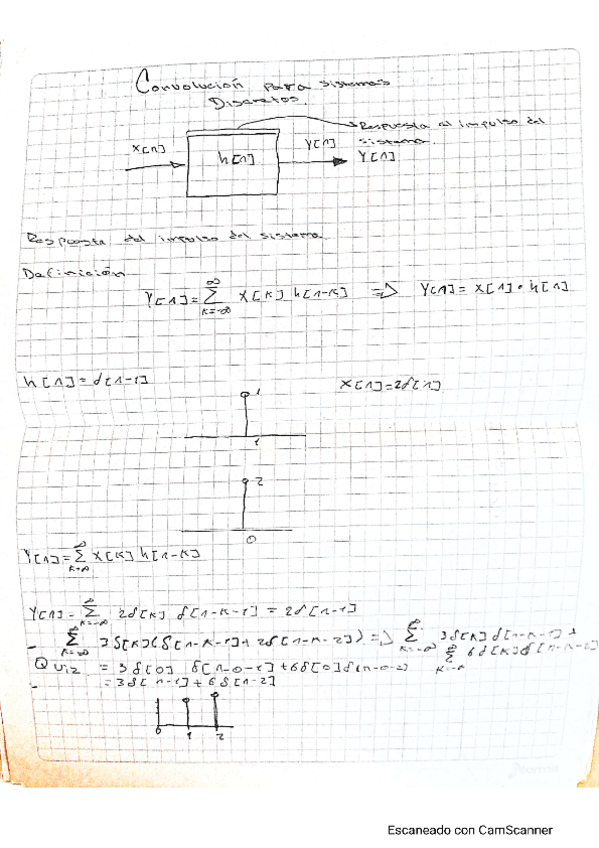 Convolución para sistemas
Discretos.
Respuesta al impulso del
sistema.
x[n]
h[n]
y[n]
y[n]
Respuesta del impulso del sistema
Definición
y[n] = ∑ k=-∞ ∞ x[k] h[n-k] => y[n] = x[n] * h[n]
h[n] = δ[n-1]
x[n] = 2δ[n]
1
1
2
0
y[n] = ∑ k=-∞ ∞ x[k] h[n-k]
y[n] = ∑ k=-∞ ∞ 2δ[k] δ[n-k-1] = 2δ[n-1]
- ∑ k=-∞ ∞ 3δ[k](δ[n-k-1] + 2δ[n-k-2]) => ∑ k=-∞ ∞ 3δ[k] δ[n-k-1] +
∑ 6δ[k]δ[n-k-2]
Quiz = 3δ[0] δ[n-0-1] + 6δ[0]δ[n-0-2]
- = 3δ[n-1] + 6δ[n-2]
0 1 2
Escaneado con CamScanner